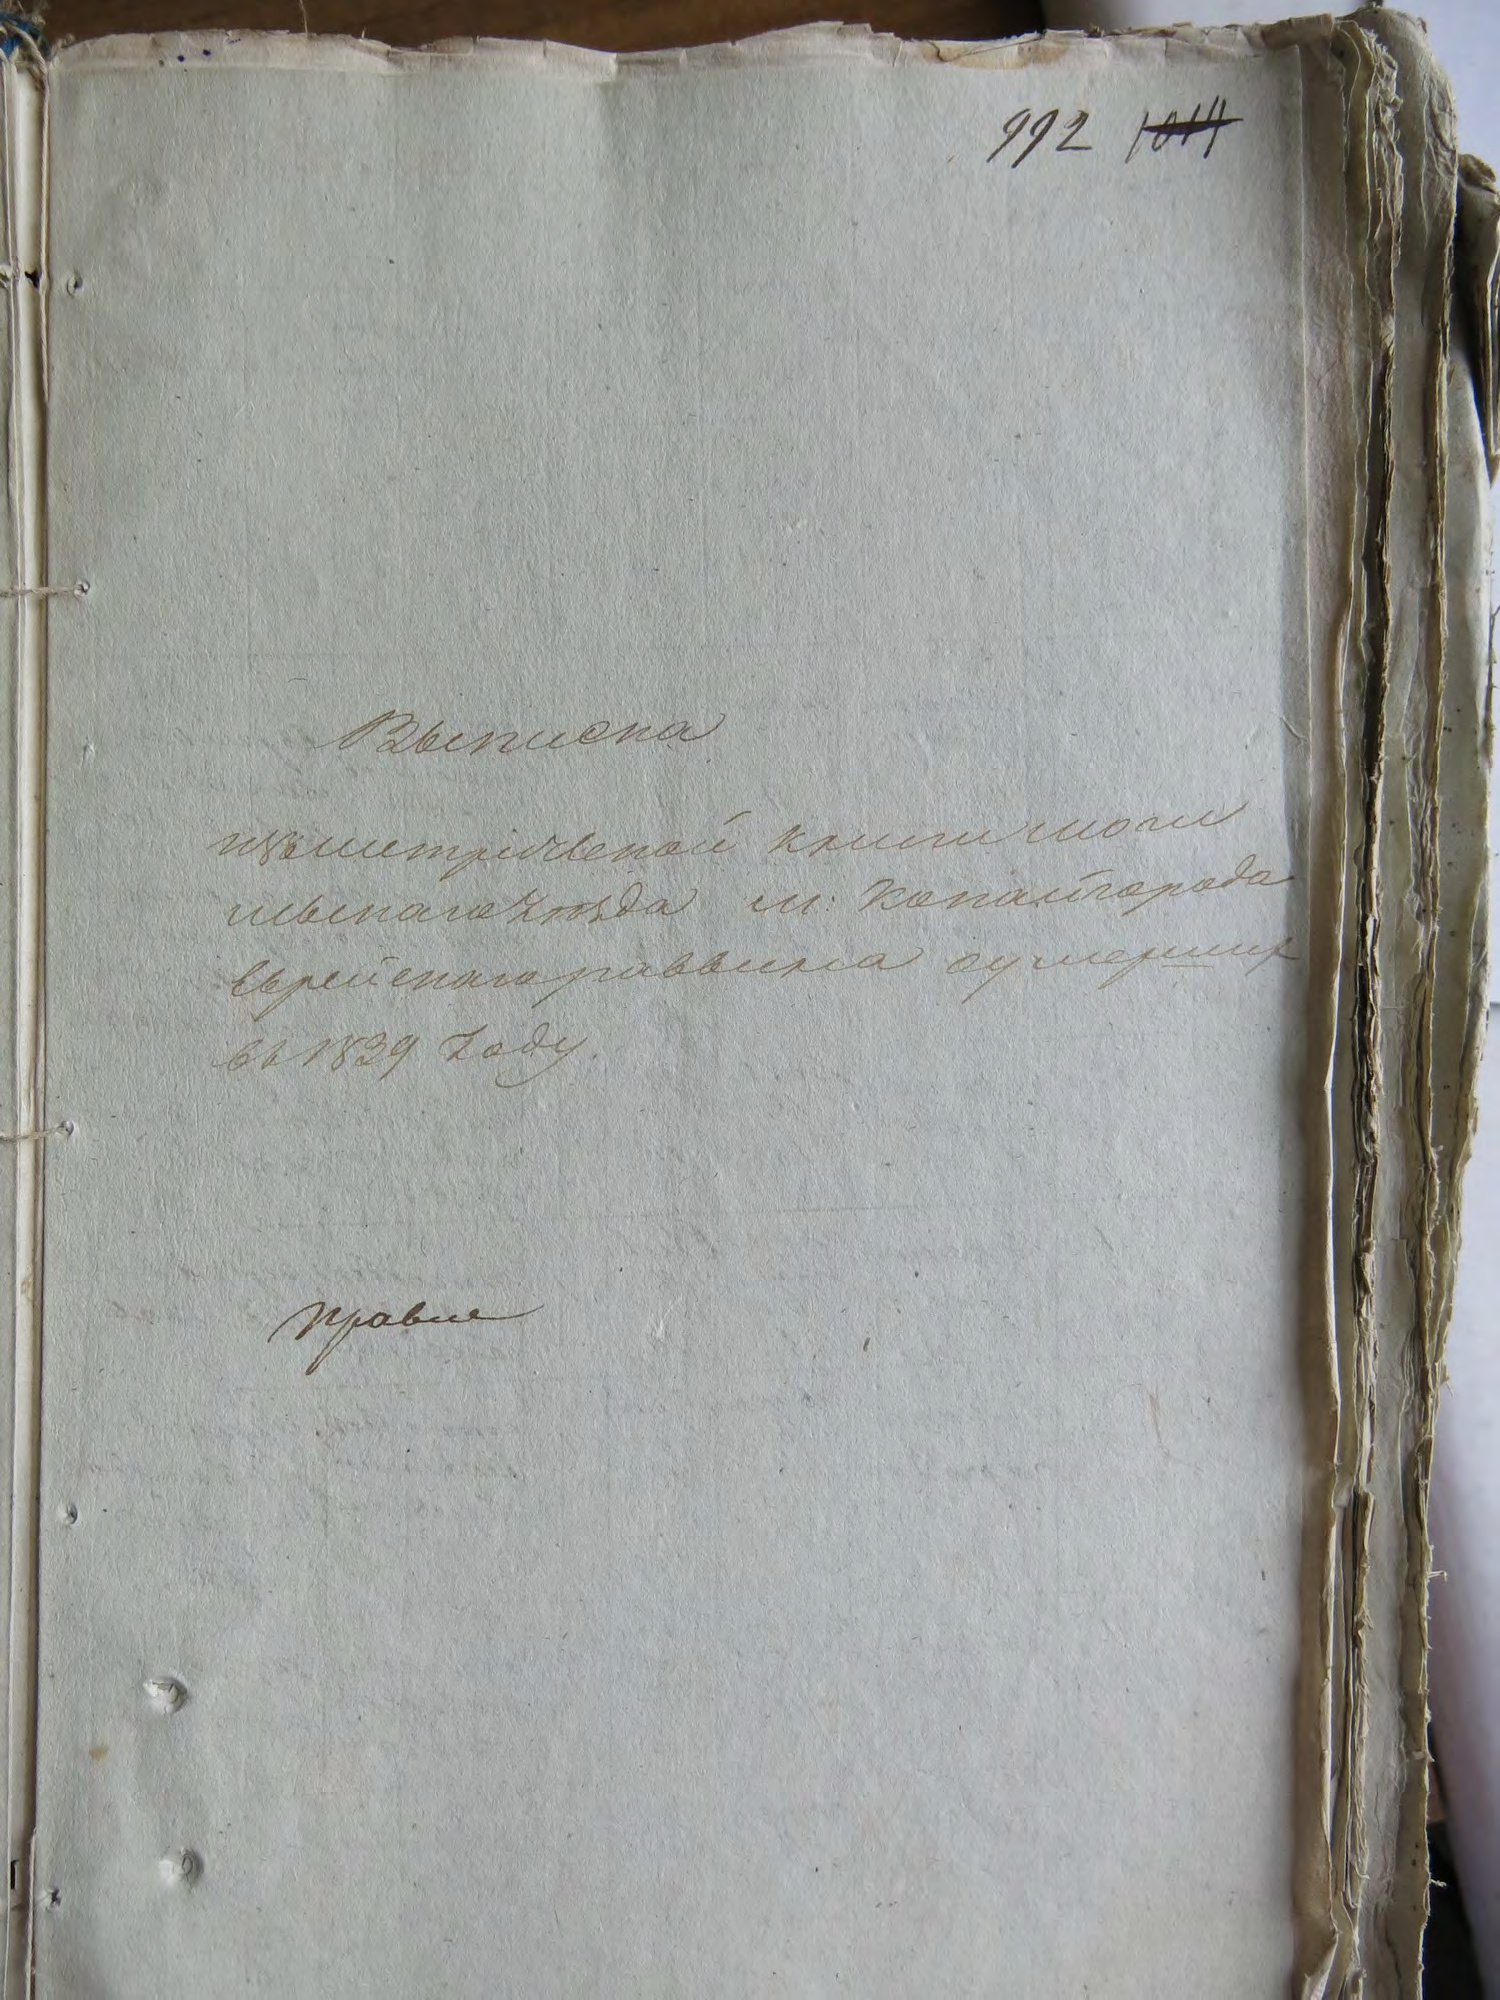 992 1014
Выписка
изъ метрической книги моги
левскаго уезда м: Копайгорода
еврейскаго раввина оумерших
въ 1839 году.